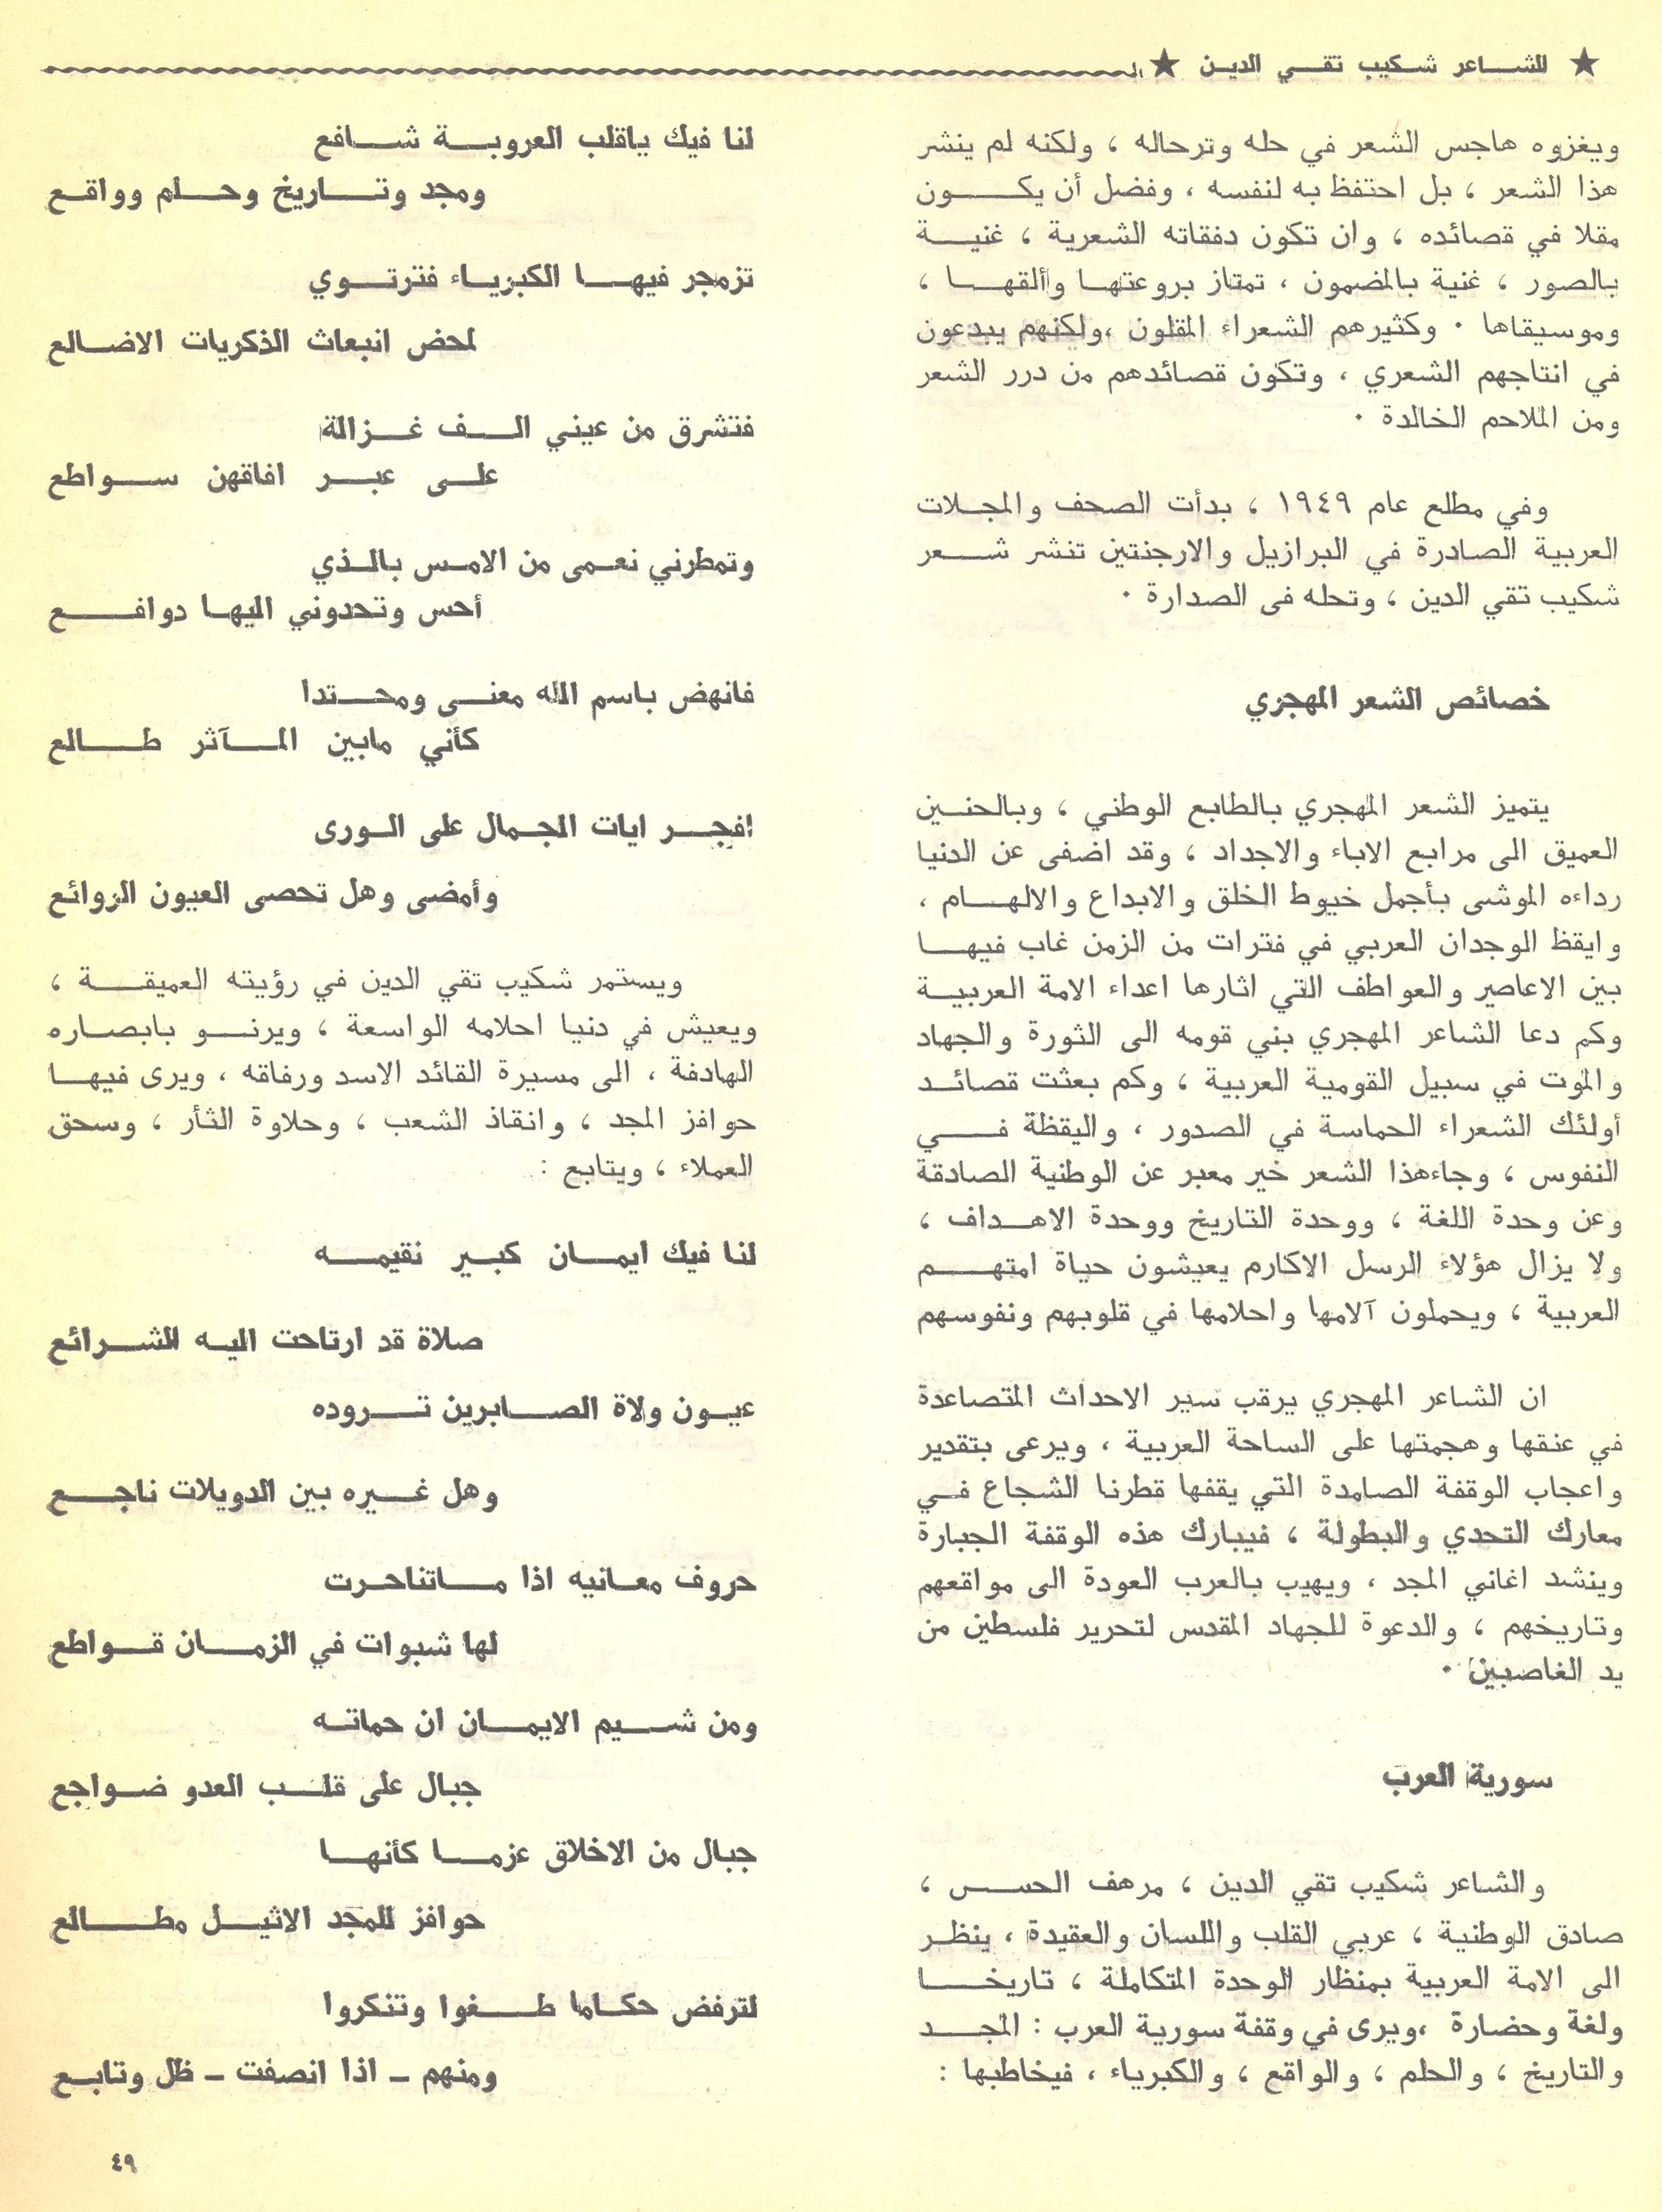 ★ للشاعر شكيب تقي الدين ★
ويغزوه هاجس الشعر في حله وترحاله ، ولكنه لم ينشر
هذا الشعر ، بل احتفظ به لنفسه ، وفضل أن يكون
مقلا في قصائده ، وان تكون دفقاته الشعرية ، غنية
بالصور ، غنية بالمضمون ، تمتاز بروعتها وألقها ،
وموسيقاها . وكثيرهم الشعراء المقلون ،ولكنهم يبدعون
في انتاجهم الشعري ، وتكون قصائدهم من درر الشعر
ومن الملاحم الخالدة .
وفي مطلع عام ١٩٤٩ ، بدأت الصحف والمجلات
العربية الصادرة في البرازيل والارجنتين تنشر شعر
شكيب تقي الدين ، وتحله فى الصدارة .
خصائص الشعر المهجري
يتميز الشعر المهجري بالطابع الوطني ، وبالحنين
العميق الى مرابع الاباء والاجداد ، وقد اضفى عن الدنيا
رداءه الموشى بأجمل خيوط الخلق والابداع والالهام ،
وايقظ الوجدان العربي في فترات من الزمن غاب فيها
بين الاعاصير والعواطف التي اثارها اعداء الامة العربية
وكم دعا الشاعر المهجري بني قومه الى الثورة والجهاد
والموت في سبيل القومية العربية ، وكم بعثت قصائد
أولئك الشعراء الحماسة في الصدور ، واليقظة في
النفوس ، وجاءهذا الشعر خير معبر عن الوطنية الصادقة
وعن وحدة اللغة ، ووحدة التاريخ ووحدة الاهداف ،
ولا يزال هؤلاء الرسل الاكارم يعيشون حياة امتهم
العربية ، ويحملون آلامها واحلامها في قلوبهم ونفوسهم
ان الشاعر المهجري يرقب سير الاحداث المتصاعدة
في عنقها وهجمتها على الساحة العربية ، ويرعى بتقدير
واعجاب الوقفة الصامدة التي يقفها قطرنا الشجاع في
معارك التحدي والبطولة ، فيبارك هذه الوقفة الجبارة
وينشد اغاني المجد ، ويهيب بالعرب العودة الى مواقعهم
وتاريخهم ، والدعوة للجهاد المقدس لتحرير فلسطين من
يد الغاصبين .
سورية العرب
والشاعر شكيب تقي الدين ، مرهف الحس ،
صادق الوطنية ، عربي القلب واللسان والعقيدة ، ينظر
الى الامة العربية بمنظار الوحدة المتكاملة ، تاريخا
ولغة وحضارة ،ويرى في وقفة سورية العرب : المجد
والتاريخ ، والحلم ، والواقع ، والكبرياء ، فيخاطبها :
لنا فيك ياقلب العروبة شافع
ومجد وتاريخ وحلم وواقع
تزمجر فيها الكبرياء فترتوي
لمحض انبعاث الذكريات الاضالع
فتشرق من عيني الف غزالة
على عبر افاقهن سواطع
وتمطرني نعمى من الامس بالذي
أحس وتحدوني اليها دوافع
فانهض باسم الله معنى ومحتدا
كأني مابين المآثر طالع
افجر ايات الجمال على الورى
وأمضى وهل تحصى العيون الروائع
ويستمر شكيب تقي الدين في رؤيته العميقة ،
ويعيش في دنيا احلامه الواسعة ، ويرنو بابصاره
الهادفة ، الى مسيرة القائد الاسد ورفاقه ، ويرى فيها
حوافز المجد ، وانقاذ الشعب ، وحلاوة الثأر ، وسحق
العملاء ، ويتابع :
لنا فيك ايمان كبير نقيمه
صلاة قد ارتاحت اليه الشرائع
عيون ولاة الصابرين تروده
وهل غيره بين الدويلات ناجع
حروف معانيه اذا ماتناحرت
لها شبوات في الزمان قواطع
ومن شيم الايمان ان حماته
جبال على قلب العدو ضواجع
جبال من الاخلاق عزما كأنها
حوافز للمجد الاثيل مطالع
لترفض حكاما طغوا وتنكروا
ومنهم - اذا انصفت - ظل وتابع
٤٩